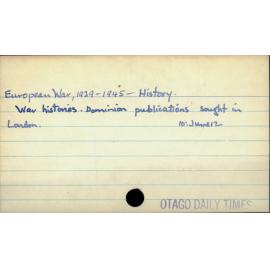 European War, 1939-1945 - History.
War histories. Dominion publications sought in
London. 10. June 12
OTAGO DAILY TIMES